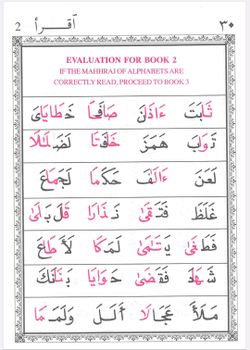 2 اَقرأ ٣٠
EVALUATION FOR BOOK 2
IF THE MAHHRAJ OF ALPHABETS ARE
CORRECTLY READ, PROCEED TO BOOK 3
ثَابَتَ ءَاذَنَ صَافَى خَطَايَاىَ
تَوَابَ هَمَزَ خَلَقَتَا
لَعَنَ ءَالَفَ حَكَمَا لَجَمَاعَ
غَلَظَ فَتَقَى نَذَارَا قَلَ بَلَى
فَطَغَى يَتَمَى لَمَكَا لَأَطَاعَ
شَهَدَ فَقَضَى حَوَايَا بَنَاتَكَ
مَلَأَ عَجَلَا أَلَلَ وَلَمَمَا